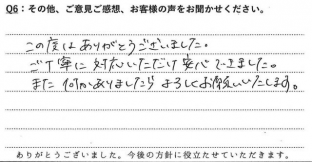 Q6：その他、ご意見ご感想、お客様の声をお聞かせください。
この度はありがとうございました。
ご丁寧に対応いただけ安心できました。
また何かありましたらよろしくお願いいたします。
ありがとうございました。今後の方針に役立たせていただきます。